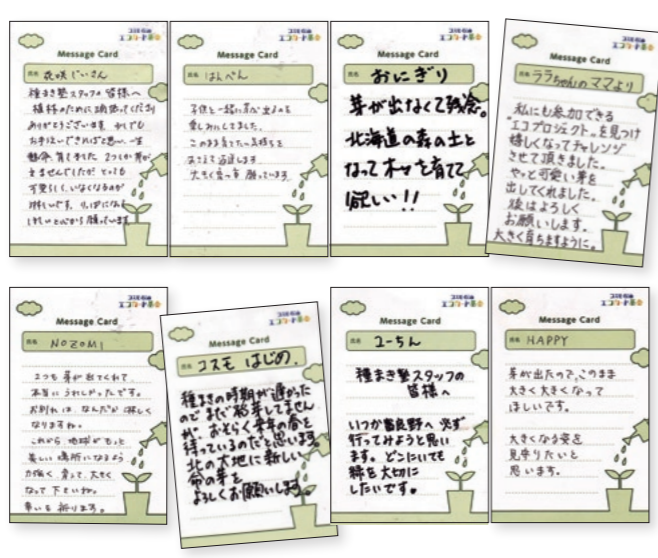 コスモ石油
エコカード基金
Message Card
氏名 花咲じいさん
種まき塾スタッフの皆様へ
植樹のために頑張ってくださり
ありがとうございます 少しでも
お手伝いできればと思い、一生
懸命、育てました 2つしか芽が
出ませんでしたが とっても
可愛らしく、いなくなるのが
淋しいです。りっぱになって
ほしいと心から願っています
コスモ石油
エコカード基金
Message Card
氏名 はんぺん
子供と一緒に芽が出るのを
楽しみにしてました。
このまま育てたい気持ちを
おさえて返送します
大きく育つ事 願っています
コスモ石油
エコカード基金
Message Card
氏名 おにぎり
芽が出なくて残念。
北海道の森の土と
なって木々を育てて
欲しい!!
コスモ石油
エコカード基金
Message Card
氏名 ララちゃんのママより
私にも参加できる
"エコプロジェクト"を見つけ
嬉しくなってチャレンジ
させて頂きました。
やっと可愛い芽を
出してくれました。
後はよろしく
お願いします。
大きく育ちますように。
コスモ石油
エコカード基金
Message Card
氏名 NOZOMI
2つも芽が出てくれて
本当に うれしかったです。
お別れは、なんだか淋しく
なりますね。
これから 地球が もっと
美しい場所になるよう
力強く 育って、大きく
なって 下さいね。
幸いを祈ります。
コスモ石油
エコカード基金
Message Card
氏名 コスモ はじめ.
種まきの時期が遅かった
のでまだ発芽してません
が、おそらく来年の春を
待っているのだと思います。
北の大地に新しい
命の芽を
よろしくお願いします。
コスモ石油
エコカード基金
Message Card
氏名 ユーちん
種まき塾スタッフの
皆様へ
いつか富良野へ 必ず
行ってみようと思い
ます。どこにいても
緑を大切に
したいです。
コスモ石油
エコカード基金
Message Card
氏名 HAPPY
芽が出たので、このまま
大きく大きくなって
ほしいです。
大きくなる姿を
見守りたいと
思います。